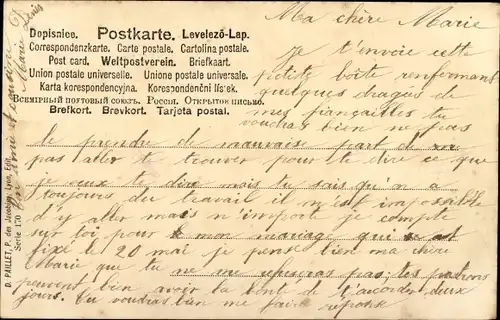 Dopisnice. Postkarte. Levelező-Lap.
Correspondenzkarte. Carte postale. Cartolina postale.
Post card. Weltpostverein. Briefkaart.
Union postale universelle. Unione postale universale.
Karta korespondencyjna. Korespondenční lístek.
Всемірный почтовый союзъ. Россія. Открытое письмо.
Brefkort. Brevkort. Tarjeta postal.
D. PAILLET, P. des Jacobins, Lyon, Edit.
Série 170
Ma chère Marie
Je t'envoie cette
petite boîte renfermant
quelques dragés de
mes fiançailles tu
voudras bien ne pas
le prendre de mauvaise part, de
pas aller te trouver pour te dire ce que
je veux te dire mais tu sais qu'on a
toujours du travail il m'est impossible
d'y aller mais n'importe je compte
sur toi pour mon mariage qui est
fixé le 20 mai je pense bien ma chère
Marie que tu ne me refuseras pas tes patrons
peuvent bien avoir la bonté de t'accorder deux
jours. Tu voudras bien me faire réponse
Ton amie et cousine
Marie